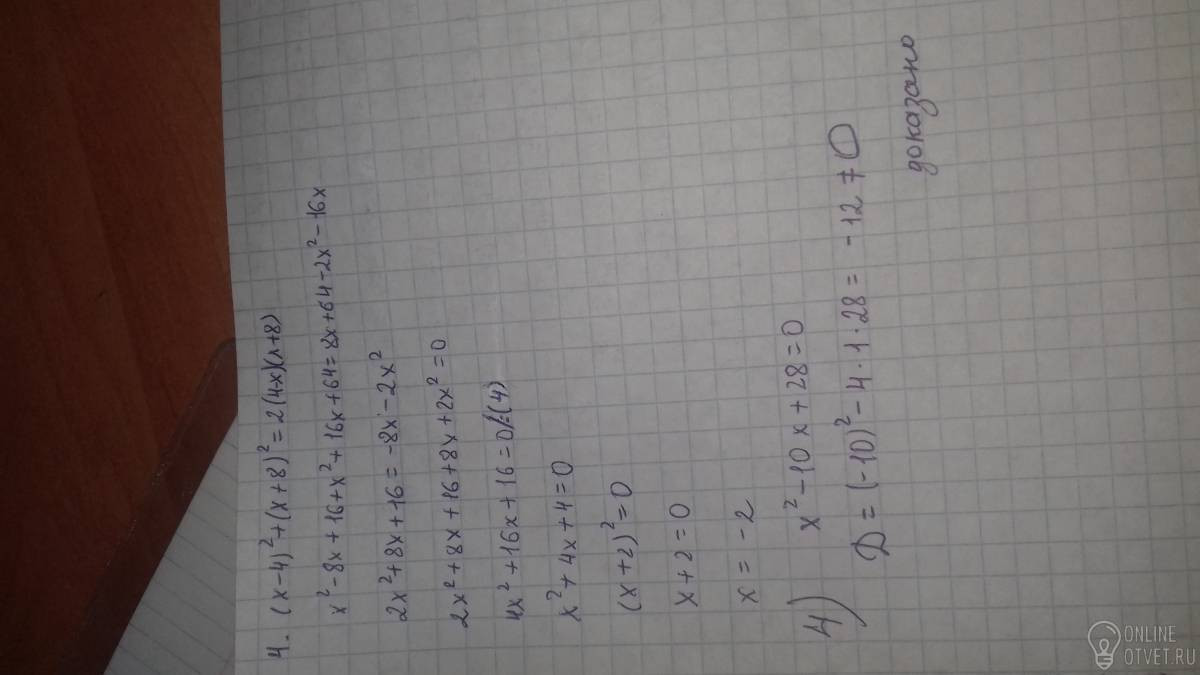 4. (x-4)²+(x+8)²=2(4-x)(x+8)
x²-8x+16+x²+16x+64=8x+64-2x²-16x
2x²+8x+16=-8x-2x²
2x²+8x+16+8x+2x²=0
4x²+16x+16=0/:(4)
x²+4x+4=0
(x+2)²=0
x+2=0
x=-2
4) x²-10x+28=0
D=(-10)²-4·1·28=-12≠0
доказано
ONLINE
OTVET.RU